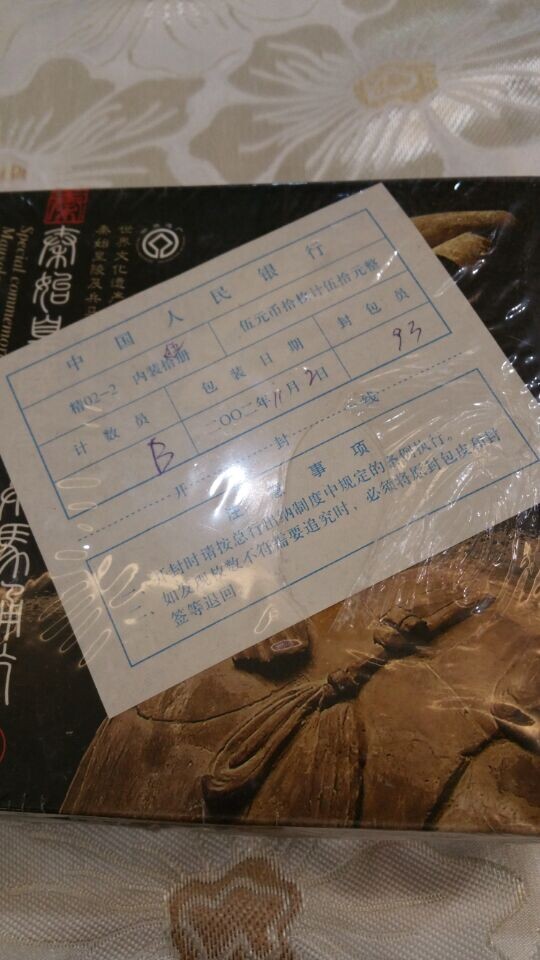 世界文化遗产
秦始皇陵及兵马
秦始皇
马俑
Special commemor
中国人民银行
精02-2 内装拾册 伍元币拾枚计伍拾元整
计数员 包装日期 封包员
B 二〇〇二年11月2日 93
开封线
注意事项
一、开封时请按总行出纳制度中规定的条例执行。
二、如发现枚数不符需要追究时，必须将原封包皮和封
签等退回